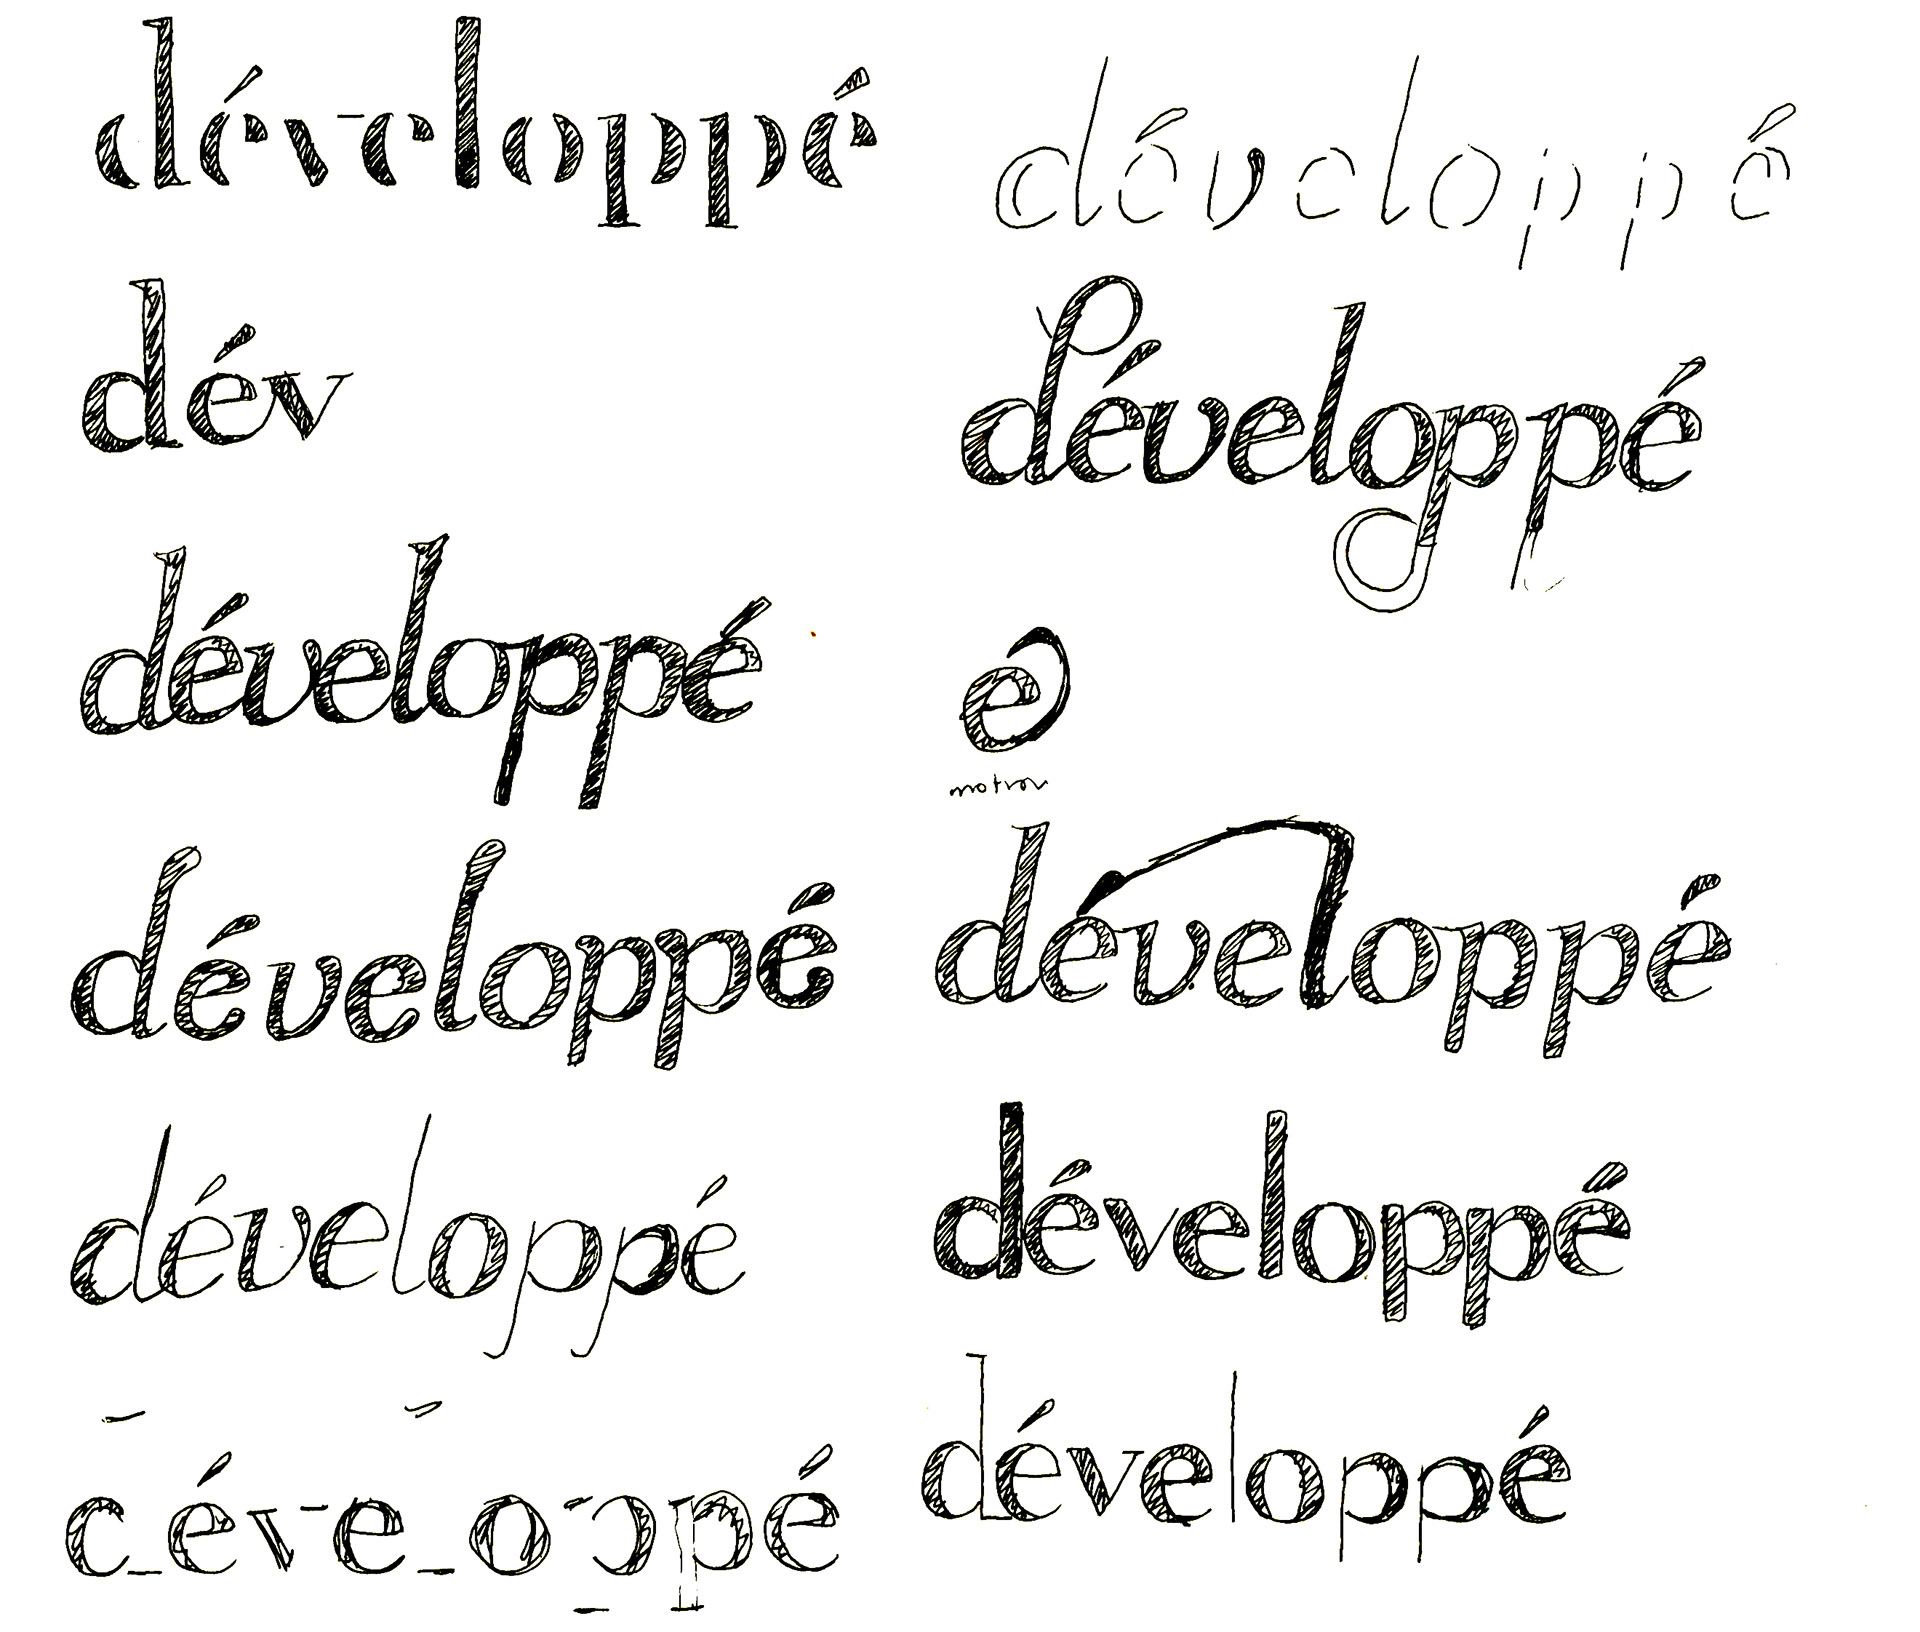 développé
dév
développé
développé
développé
c_éve_oppé
développé
développé
e
motion
développé
développé
développé